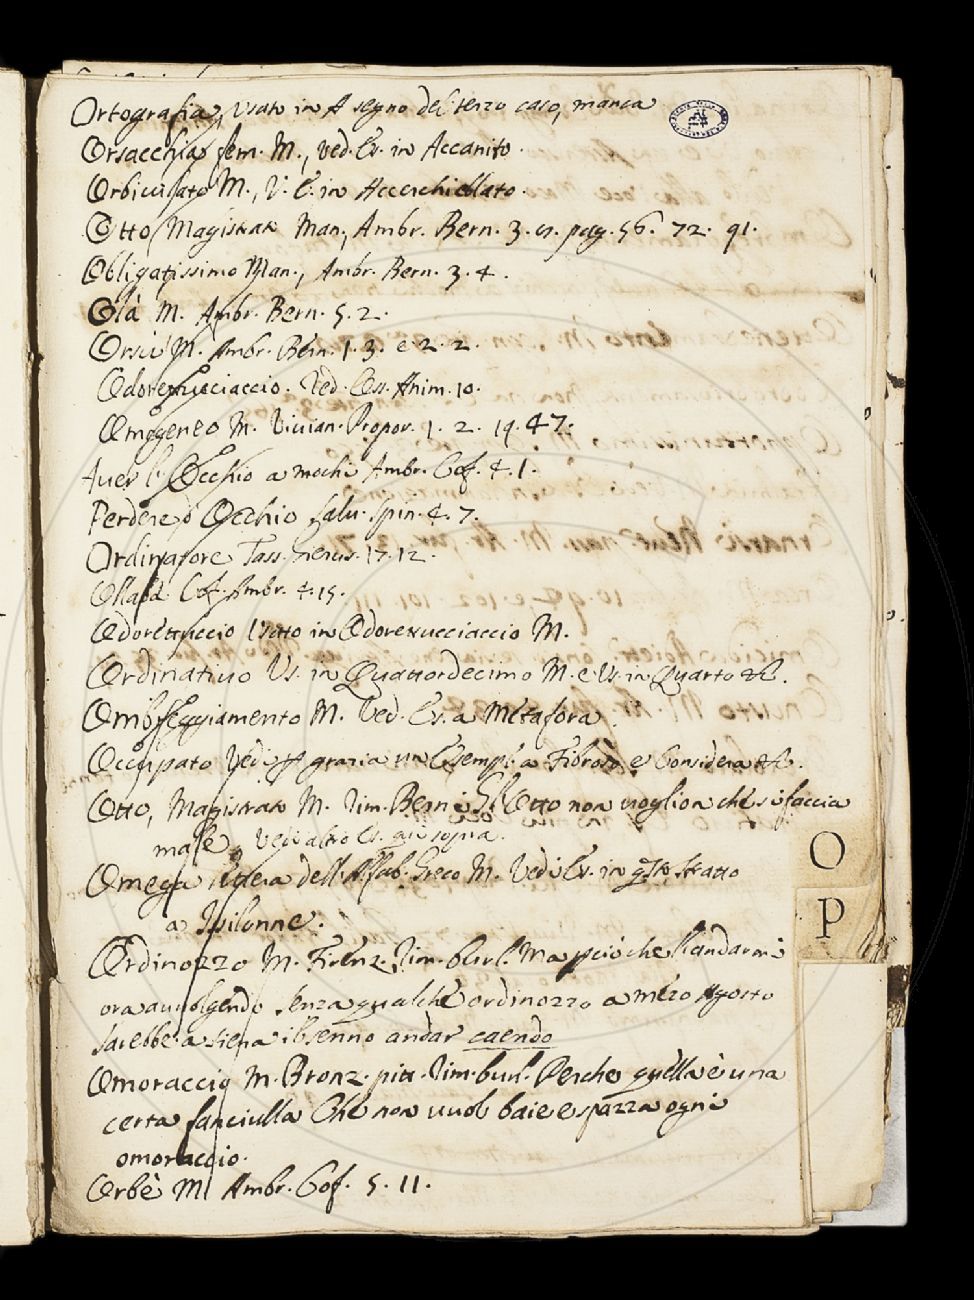 Ortografia, Usato in A segno del terzo caso, manca
Orsacchia fem. M., ved. Es. in Accanito.
Orbiculato M., V. E. in Accerchiellato.
Otto Magistrati Man., Ambr. Bern. 3. pag. 56. 72. 91.
Obligatissimo Man., Ambr. Bern. 3. 4.
Olà M. Ambr. Bern. 5. 2.
Orsù M. Ambr. Bern. 1. 3. e 2. 2.
Odoretucciaccio. Ved. Oss. Anim. 10.
Omogeneo M. Vivian. Propor. 1. 2. 19. 47.
Aver l'Occhio a mochi Ambr. Cof. 4. 1.
Perdere d'Occhio Salv. Spin. 4. 7.
Ordinatore Tass. Gerus. 17. 12.
Cof. Ambr. 4. 15.
Odoretuccio Usato in Odoretucciaccio M.
Ordinativo Us. in Quattordecimo M. e Us. in Quarto &c.
Ombreggiamento M. Ved. Es. a Metafora.
Occupato Vedi A grazia un Esemp. a Fibroso e Considera &c.
Otto, Magistrati M. Rim. Berni Gl'Otto non voglion che si faccia
male. Vedi altro Es. qui sopra.
Omega lettera dell'Alfab. Greco M. Vedi Es. in qsto stratto
a Ipsilonne.
Ordinozzo M. Firenz. Rim. burl. Ma pciò che l'andarmi
ora avvolgendo senza qualche ordinozzo a mezo Agosto
sarebbe a Siena il senno andar caendo
Omoraccio M. Bronz. pitt. Rim. burl. Perche quella è una
certa fanciulla Che non vuol baie e spazza ogni
omoraccio.
Orbè M. Ambr. Cof. 5. 11.
O
P